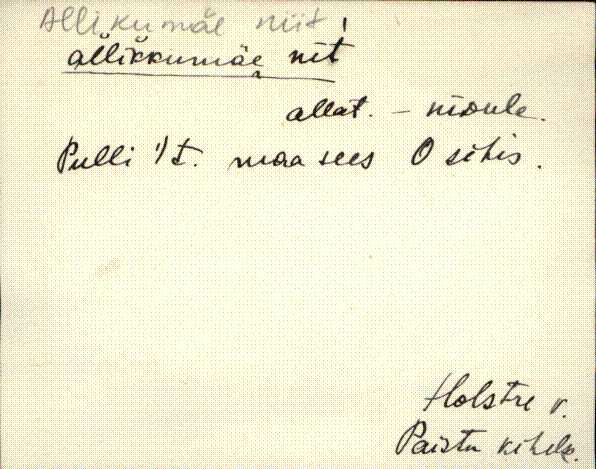 Allikumäe niit
al̆lik̆kumäe nīt
allat. – niɒule.
Pulli ¹/t. maa sees O sihis.
Holstre v.
Paistu kihelk.